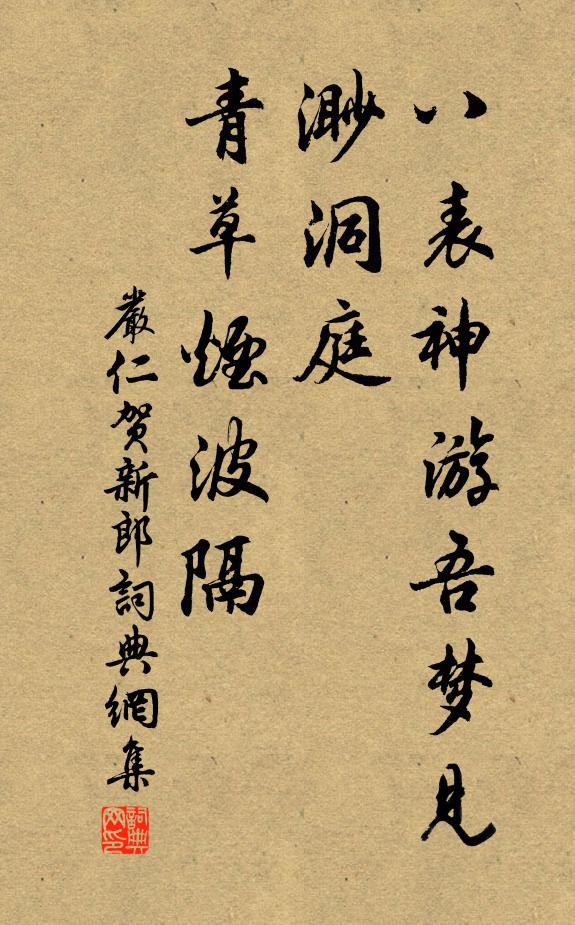 八表神游吾梦见
渺洞庭
青草煙波隔
嚴仁贺新郎詞典網集
詞典网印